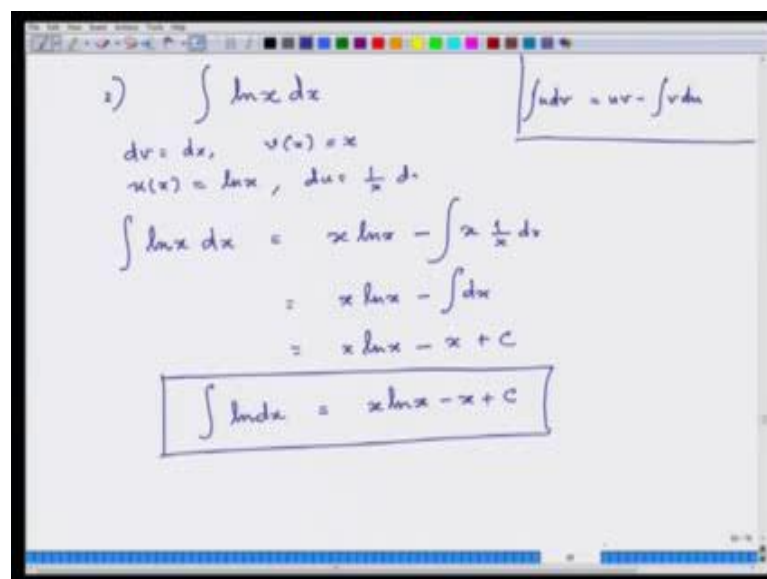 2) ∫ lnx dx
∫udv = uv - ∫vdu
dv = dx, v(x) = x
u(x) = lnx, du = 1/x d
∫ lnx dx = x lnx - ∫ x 1/x dx
= x lnx - ∫dx
= x lnx - x + C
∫ lndx = x lnx - x + C